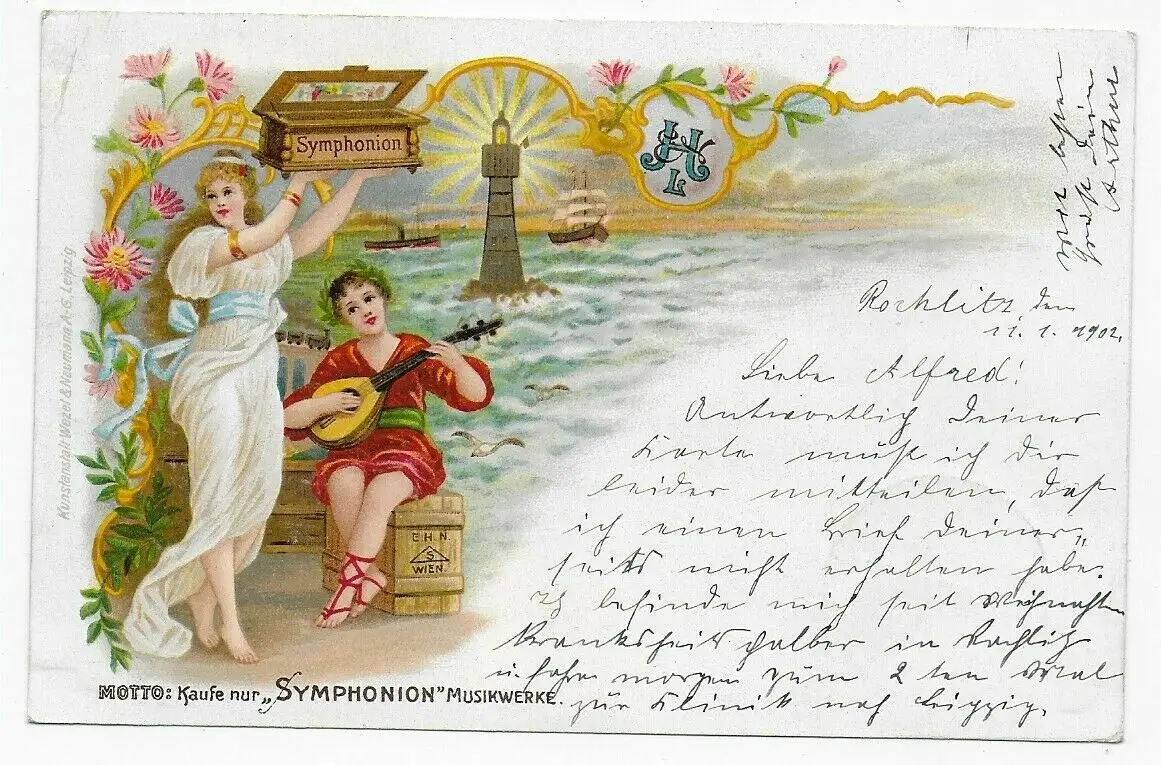 Symphonion
JHL
Kunstanstalt Wezel & Naumann A.-G. Leipzig.
E.H.N.
S
WIEN.
MOTTO: Kaufe nur „SYMPHONION” MUSIKWERKE.
Rochlitz, den
11. 1. 1902.
Liebe Alfred!
Antwortlich Deiner
Karte muß ich Dir
leider mitteilen, daß
ich einen Brief Deiner„
seits nicht erhalten habe.
Ich befinde mich seit Weihnachten
Krankheits halber in Rochlitz
u. fahre morgen zum 2 ten Mal
zur Klinik nach Leipzig.
Mit besten
Gruß Dein
Arthur